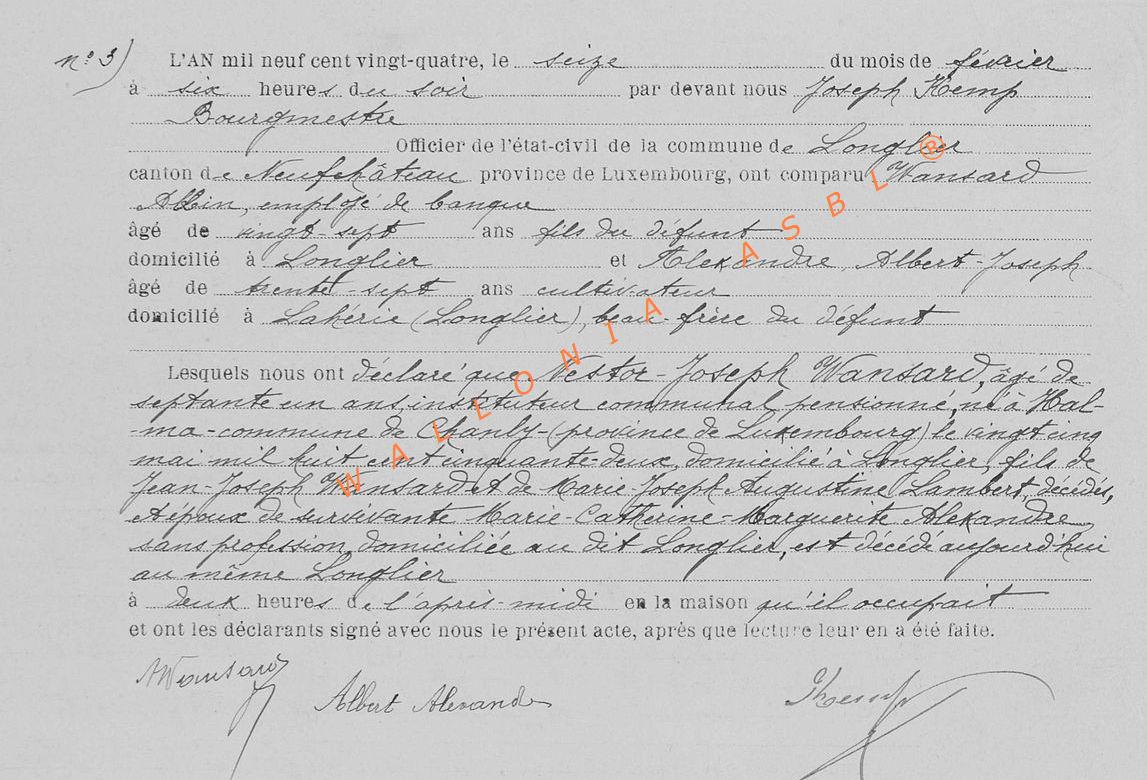 n° 3) L'AN mil neuf cent vingt-quatre, le seize du mois de février
à six heures du soir par devant nous Joseph Kemp
Bourgmestre
Officier de l'état-civil de la commune de Longlier
canton de Neufchâteau province de Luxembourg, ont comparu Wansard
Albin, employé de banque
âgé de vingt-sept ans fils du défunt
domicilié à Longlier et Alexandre, Albert-Joseph
âgé de trente-sept ans cultivateur
domicilié à Lahérie (Longlier), beau-frère du défunt
Lesquels nous ont déclaré que Nestor-Joseph Wansard, âgé de
septante un ans, instituteur communal pensionné, né à Hal-
-ma-commune de Chanly-(province de Luxembourg) le vingt cinq
mai mil huit cent cinquante-deux, domicilié à Longlier, fils de
Jean-Joseph Wansard et de Marie-Joseph Augustine Lambert, décédés,
et époux de survivante Marie-Catherine-Marguerite Alexandre
sans profession, domiciliée au dit Longlier, est décédé aujourd'hui
au même Longlier
à deux heures de l'après-midi en la maison qu'il occupait
et ont les déclarants signé avec nous le présent acte, après que lecture leur en a été faite.
AWansard
Albert Alexandre
JKemp
WALLONIA ASBL ®